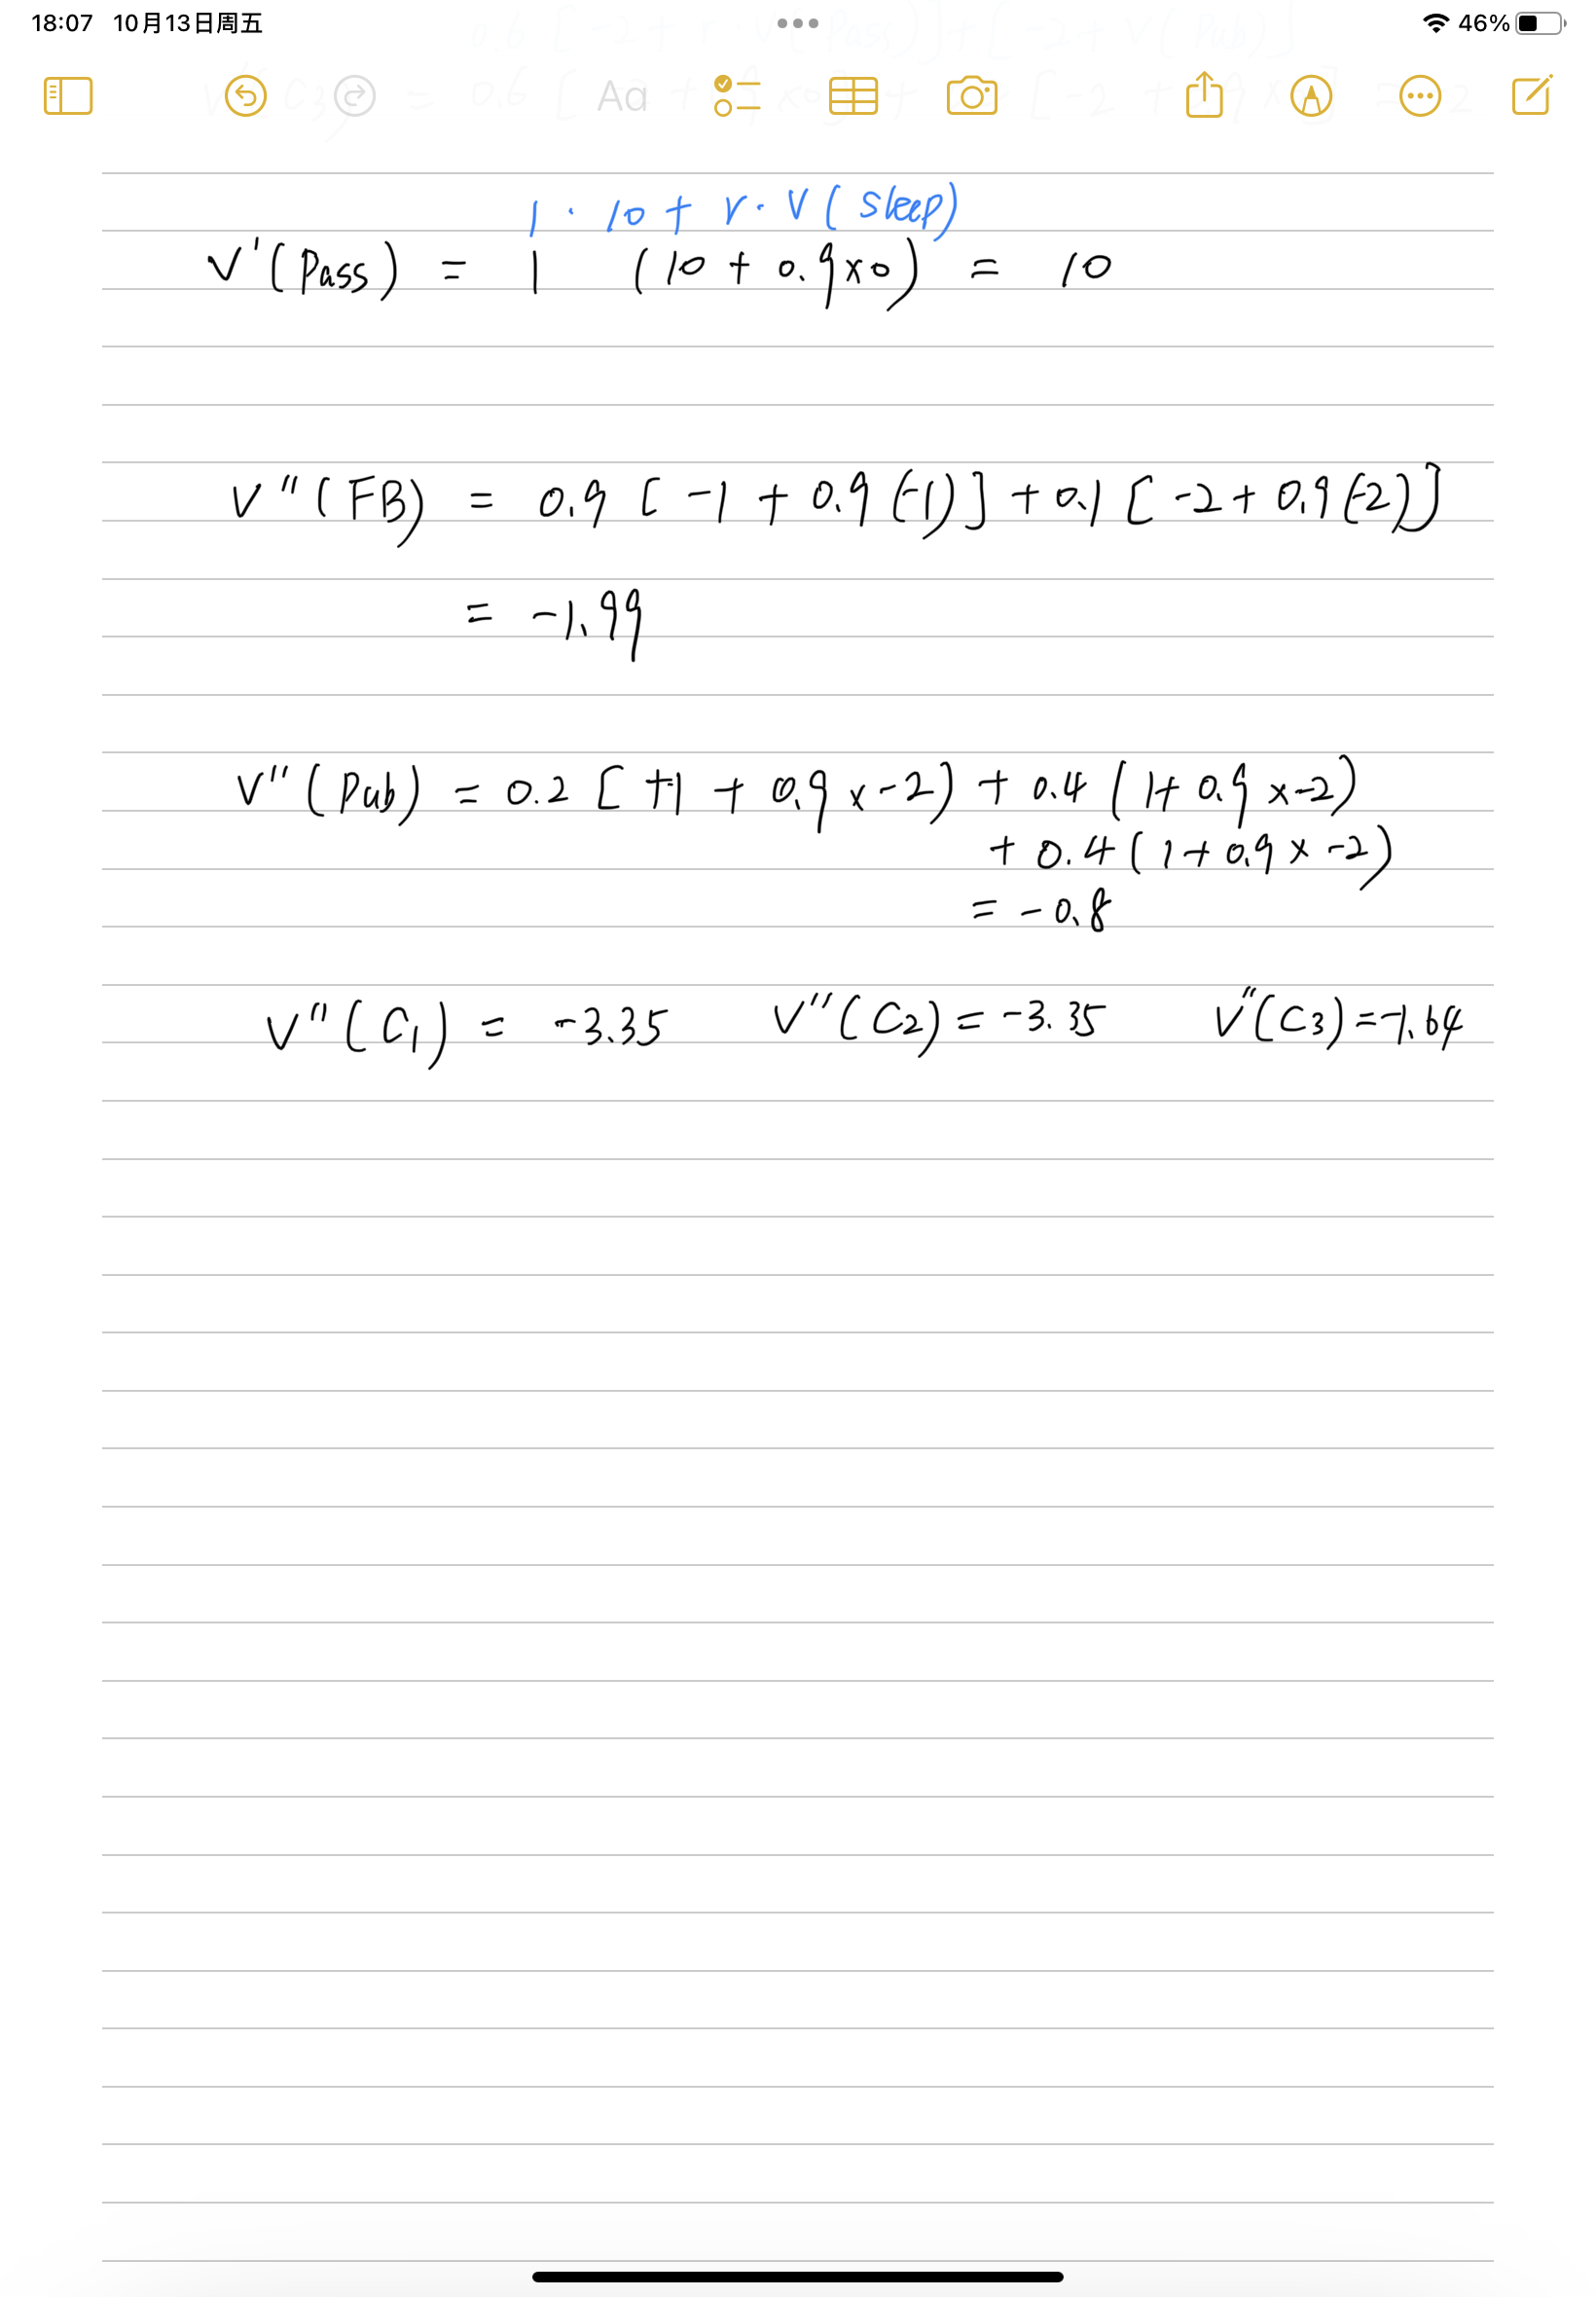 18:07 10月13日周五
46%
Aa
1 · 10 + r · V ( sleep)
V'(Pass) = 1 (10 + 0.9x0) = 10
V''(FB) = 0.9 [ -1 + 0.9 (-1)] + 0.1 [ -2 + 0.9 (-2)]
= -1.99
V''(Pub) = 0.2 [ +1 + 0.9 x -2) + 0.4 (1 + 0.9 x -2)
+ 0.4 ( 1 + 0.9 x -2)
= -0.8
V''(C1) = -3.35 V''(C2) = -3.35 V''(C3) = -1.64